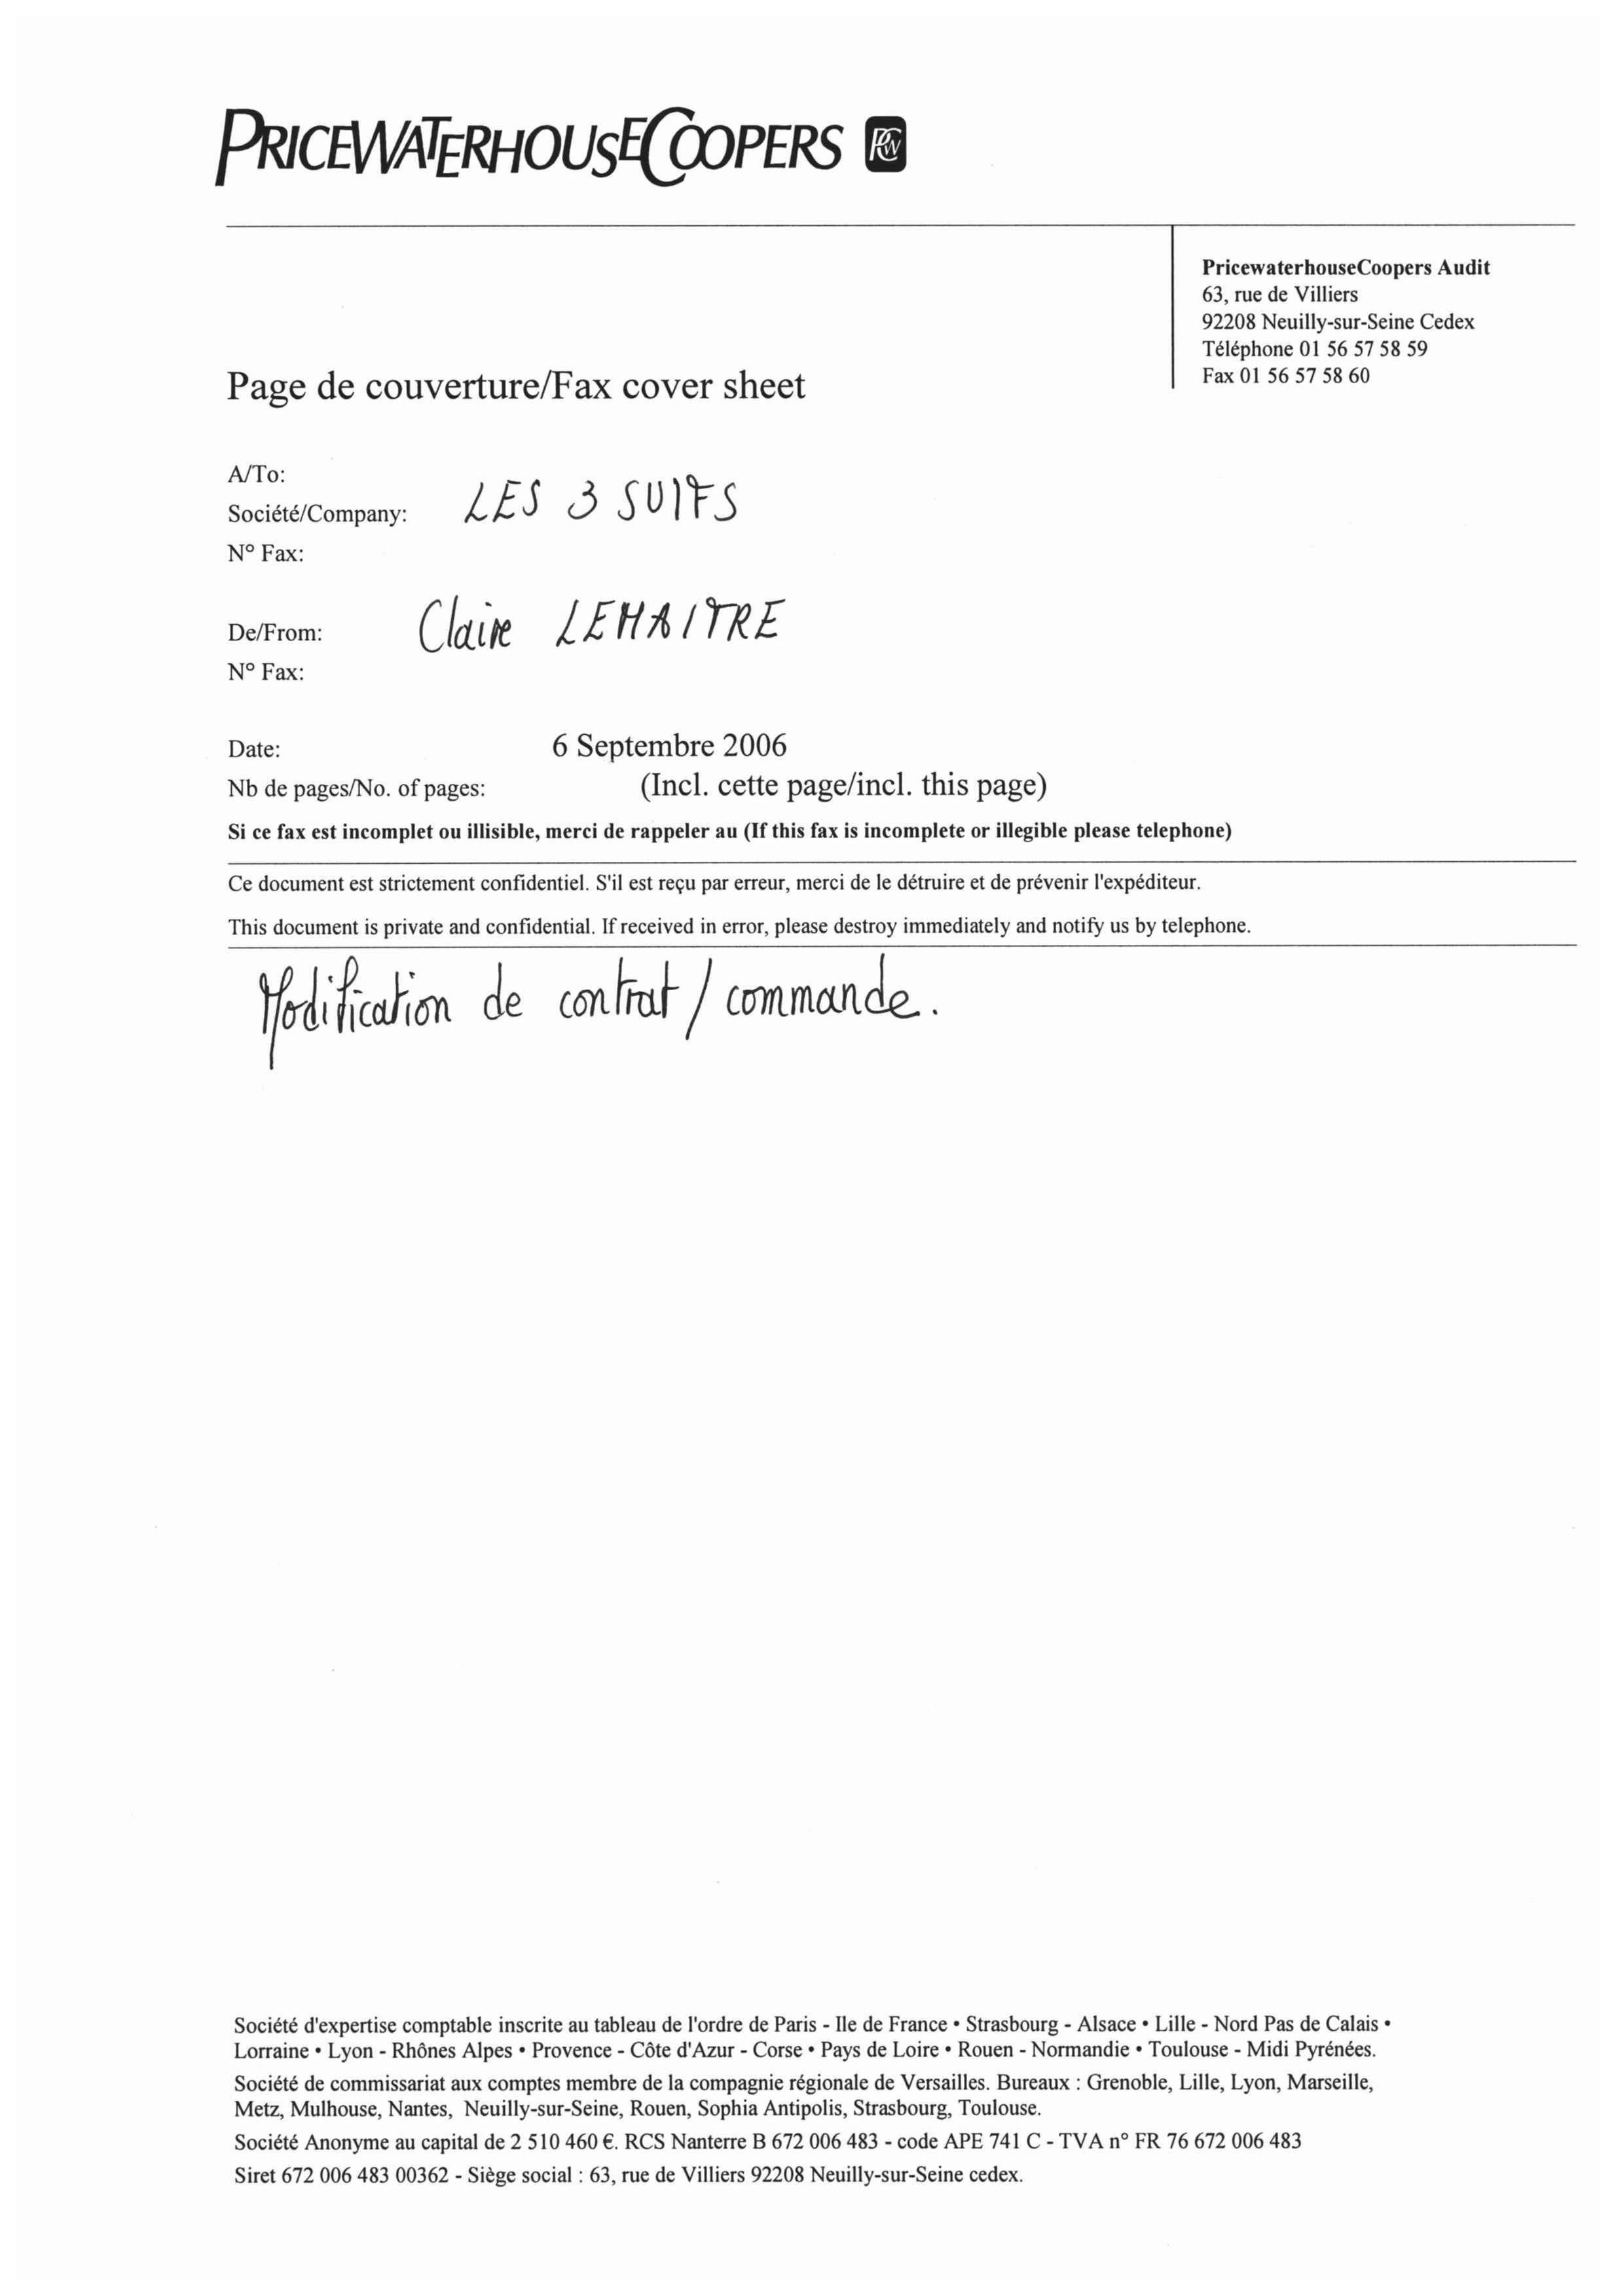 PRICEWATERHOUSECOOPERS PwC
PricewaterhouseCoopers Audit
63, rue de Villiers
92208 Neuilly-sur-Seine Cedex
Téléphone 01 56 57 58 59
Fax 01 56 57 58 60
Page de couverture/Fax cover sheet
A/To:
Société/Company: LES 3 SUIFS
N° Fax:
De/From: Claire LEMAITRE
N° Fax:
Date: 6 Septembre 2006
Nb de pages/No. of pages: (Incl. cette page/incl. this page)
Si ce fax est incomplet ou illisible, merci de rappeler au (If this fax is incomplete or illegible please telephone)
Ce document est strictement confidentiel. S'il est reçu par erreur, merci de le détruire et de prévenir l'expéditeur.
This document is private and confidential. If received in error, please destroy immediately and notify us by telephone.
Modification de contrat / commande.
Société d'expertise comptable inscrite au tableau de l'ordre de Paris - Ile de France • Strasbourg - Alsace • Lille - Nord Pas de Calais •
Lorraine • Lyon - Rhônes Alpes • Provence - Côte d'Azur - Corse • Pays de Loire • Rouen - Normandie • Toulouse - Midi Pyrénées.
Société de commissariat aux comptes membre de la compagnie régionale de Versailles. Bureaux : Grenoble, Lille, Lyon, Marseille,
Metz, Mulhouse, Nantes, Neuilly-sur-Seine, Rouen, Sophia Antipolis, Strasbourg, Toulouse.
Société Anonyme au capital de 2 510 460 €. RCS Nanterre B 672 006 483 - code APE 741 C - TVA n° FR 76 672 006 483
Siret 672 006 483 00362 - Siège social : 63, rue de Villiers 92208 Neuilly-sur-Seine cedex.